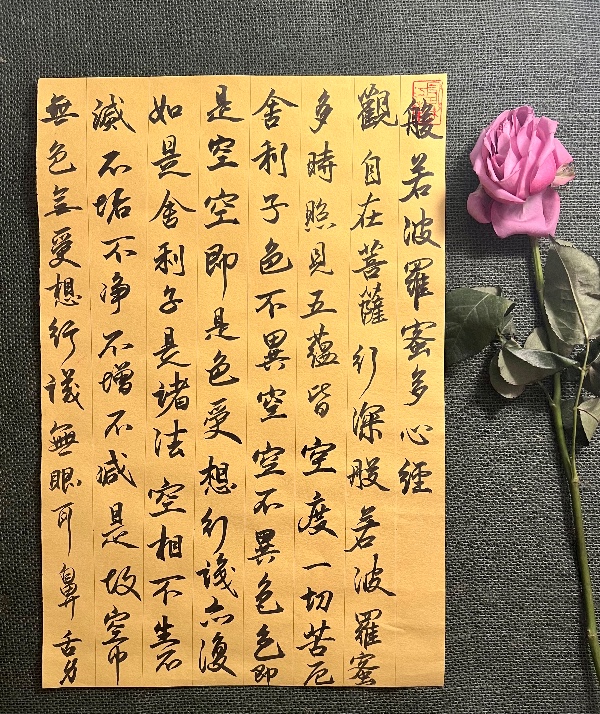 般若波羅蜜多心經
觀自在菩薩行深般若波羅蜜
多時照見五蘊皆空度一切苦厄
舍利子色不異空空不異色色即
是空空即是色受想行識亦復
如是舍利子是諸法空相不生不
滅不垢不净不增不减是故空中
無色無受想行識無眼耳鼻舌身